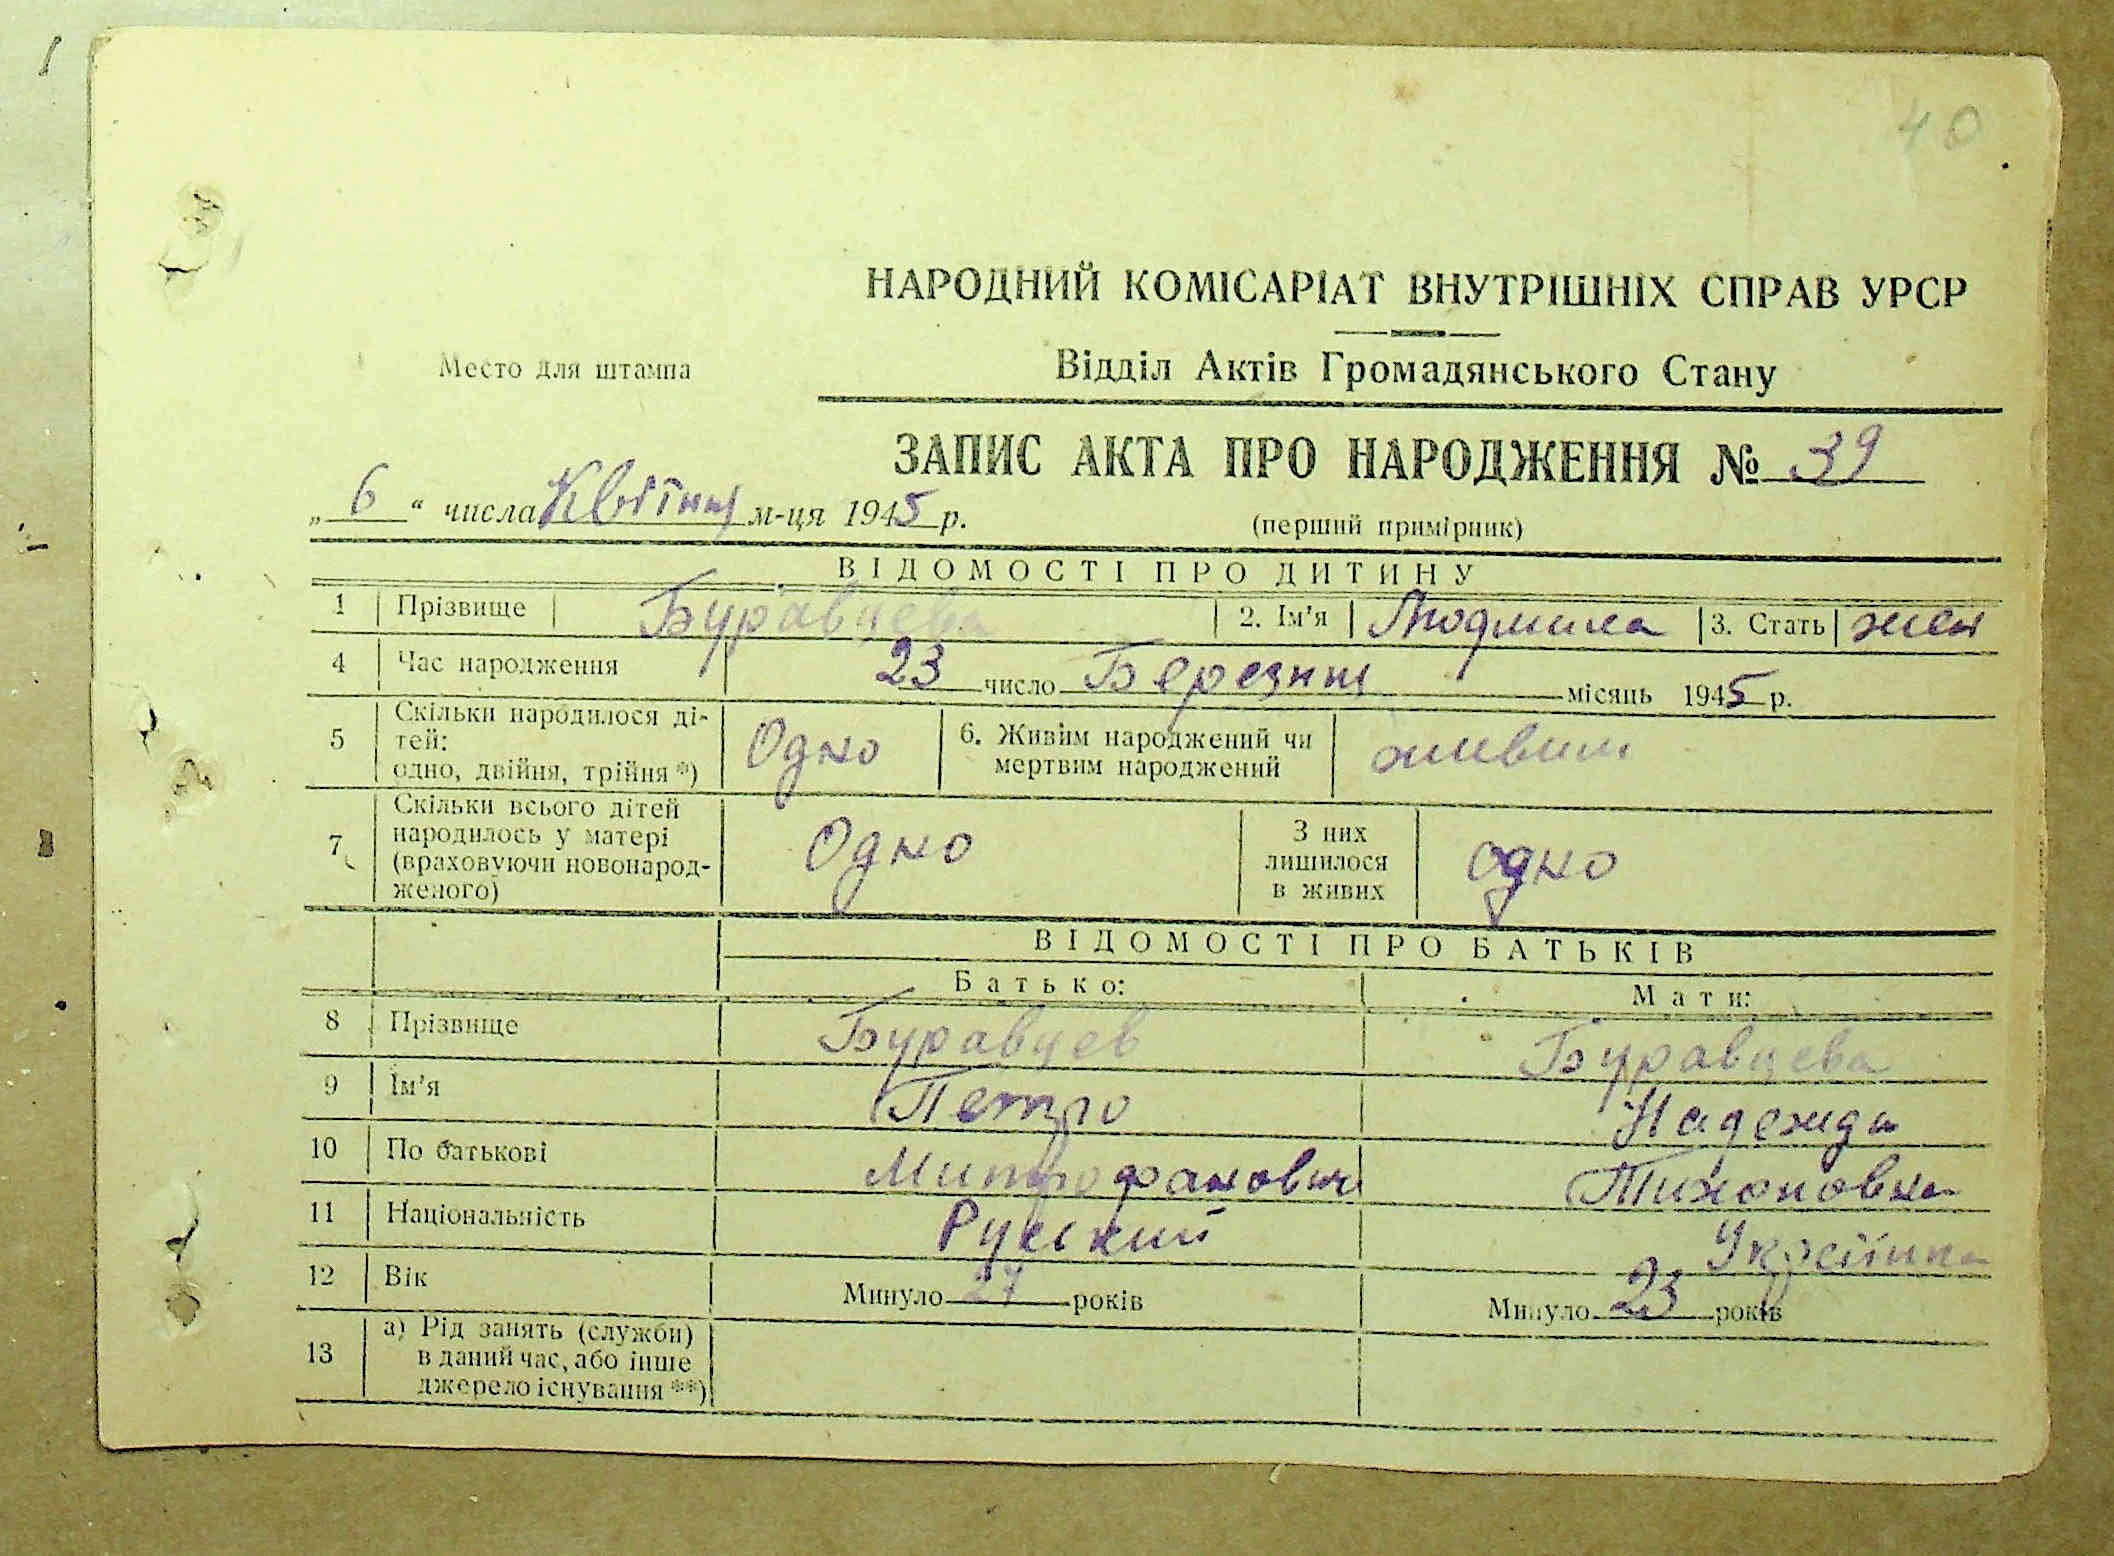 40
НАРОДНИЙ КОМІСАРІАТ ВНУТРІШНІХ СПРАВ УРСР
Место для штампа
Відділ Актів Громадянського Стану
ЗАПИС АКТА ПРО НАРОДЖЕННЯ № 39
„ 6 “ числа Квітня м-ця 1945 р.
(перший примірник)
ВІДОМОСТІ ПРО ДИТИНУ
1 Прізвище Буравцева 2. Ім'я Людмила 3. Стать жен
4 Час народження 23 число Березня місяць 1945 р.
5 Скільки народилося ді-
тей:
одно, двійня, трійня *) Одно 6. Живим народжений чи
мертвим народжений живим
7 Скільки всього дітей
народилось у матері
(враховуючи новонарод-
женого) Одно З них
лишилося
в живих одно
ВІДОМОСТІ ПРО БАТЬКІВ
Батько: Мати:
8 Прізвище Буравцев Буравцева
9 Ім'я Петро Надежда
10 По батькові Митрофанович Тихоновна
11 Національність Руський Українка
12 Вік Минуло 27 років Минуло 23 років
13 а) Рід занять (служби)
в даний час, або інше
джерело існування **)